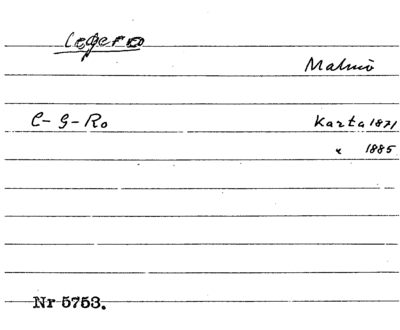 Malmö
C-G-Ro Karta 1871
" 1885
Nr 5753.